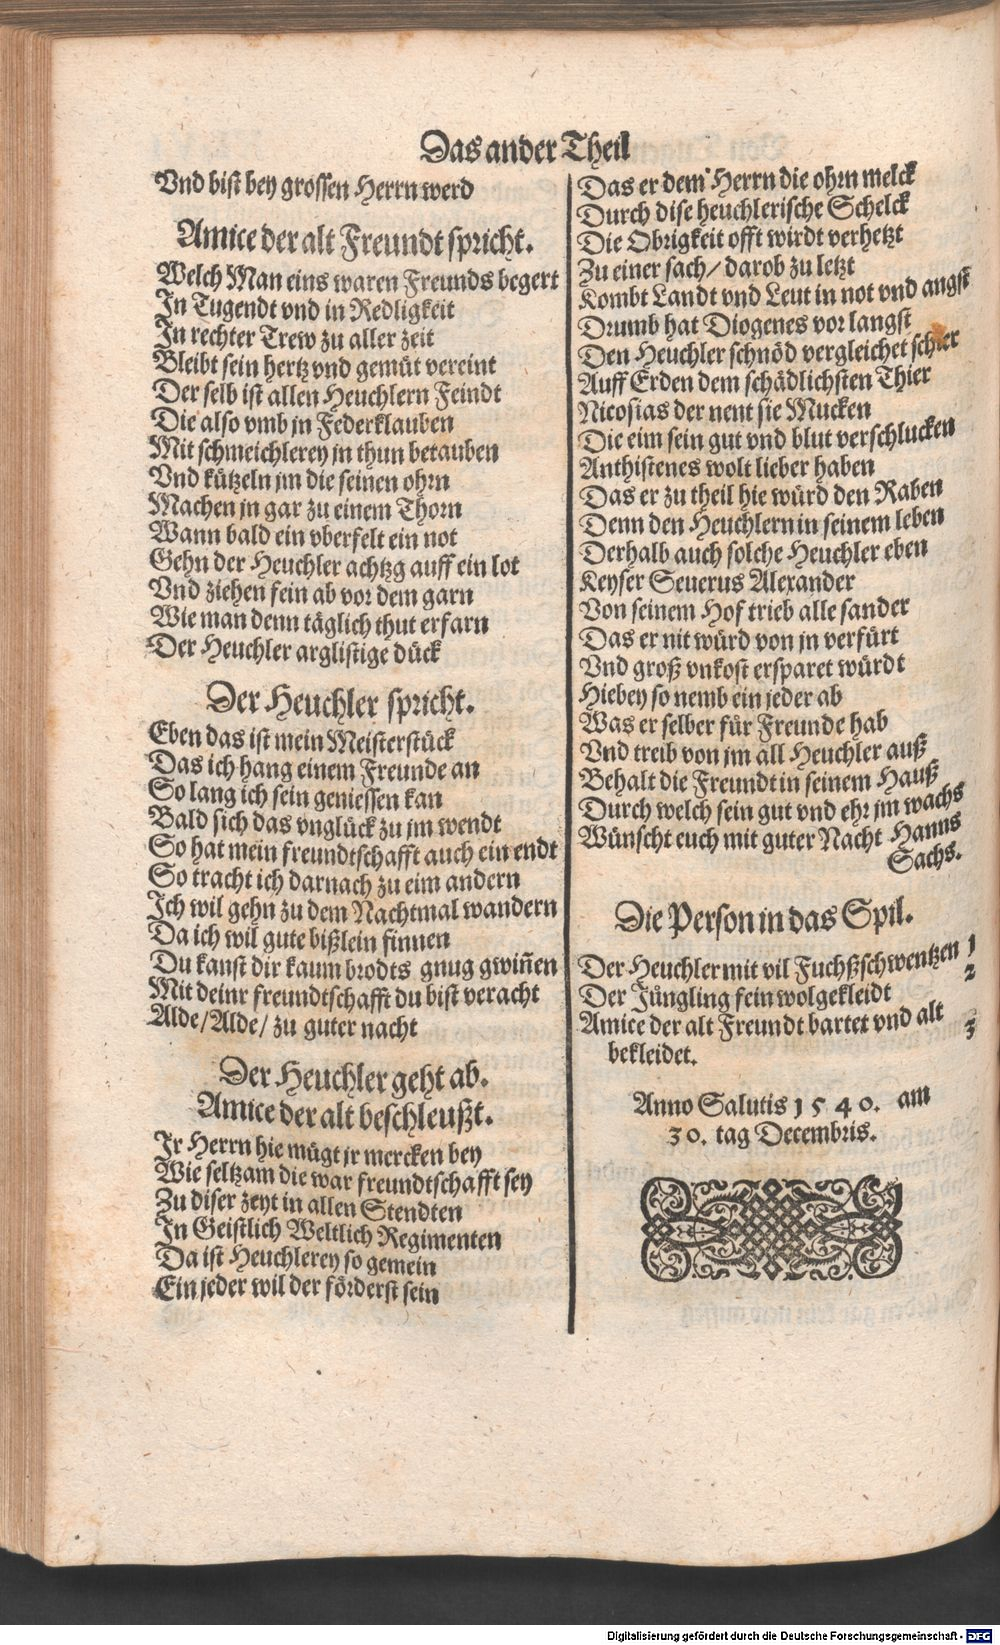 Das ander Theil
Vnd bist bey grossen Herrn werd
Amice der alt Freundt spricht.
Welch Man eins waren Freunds begert
In Tugendt vnd in Redligkeit
In rechter Trew zu aller zeit
Bleibt sein hertz vnd gemüt vereint
Der selb ist allen Heuchlern Feindt
Die also vmb jn Federklauben
Mit schmeichlerey jn thun betauben
Vnd kützeln jm die seinen ohrn
Machen jn gar zu einem Thorn
Wann bald ein vberfelt ein not
Gehn der Heuchler achtzg auff ein lot
Vnd ziehen fein ab vor dem garn
Wie man denn täglich thut erfarn
Der Heuchler arglistige dück
Der Heuchler spricht.
Eben das ist mein Meisterstück
Das ich hang einem Freunde an
So lang ich sein geniessen kan
Bald sich das vnglück zu jm wendt
So hat mein freundtschafft auch ein endt
So tracht ich darnach zu eim andern
Ich wil gehn zu dem Nachtmal wandern
Da ich wil gute bißlein finnen
Du kanst dir kaum brodts gnug gwiñen
Mit deinr freundtschafft du bist veracht
Alde/Alde/ zu guter nacht
Der Heuchler geht ab.
Amice der alt beschleußt.
Ir Herrn hie mügt jr mercken bey
Wie seltzam die war freundtschafft sey
Zu diser zeyt in allen Stendten
In Geistlich Weltlich Regimenten
Da ist Heuchlerey so gemein
Ein jeder wil der förderst sein
Das er dem Herrn die ohrn melck
Durch dise heuchlerische Schelck
Die Obrigkeit offt wirdt verhetzt
Zu einer sach/ darob zu letzt
Kombt Landt vnd Leut in not vnd angst
Drumb hat Diogenes vor langst
Den Heuchler schnöd vergleichet schier
Auff Erden dem schädlichsten Thier
Nicosias der nent sie Mucken
Die eim sein gut vnd blut verschlucken
Anthistenes wolt lieber haben
Das er zu theil hie würd den Raben
Denn den Heuchlern in seinem leben
Derhalb auch solche Heuchler eben
Keyser Seuerus Alexander
Von seinem Hof trieb alle sander
Das er nit würd von jn verfürt
Vnd groß vnkost ersparet würdt
Hiebey so nemb ein jeder ab
Was er selber für Freunde hab
Vnd treib von jm all Heuchler auß
Behalt die Freundt in seinem Hauß
Durch welch sein gut vnd ehr jm wachs
Wünscht euch mit guter Nacht Hanns
Sachs.
Die Person in das Spil.
Der Heuchler mit vil Fuchßschwentzen 1
Der Jüngling fein wolgekleidt 2
Amice der alt Freundt bartet vnd alt 3
bekleidet.
Anno Salutis 1540. am
30. tag Decembris.
Digitalisierung gefördert durch die Deutsche Forschungsgemeinschaft - DFG